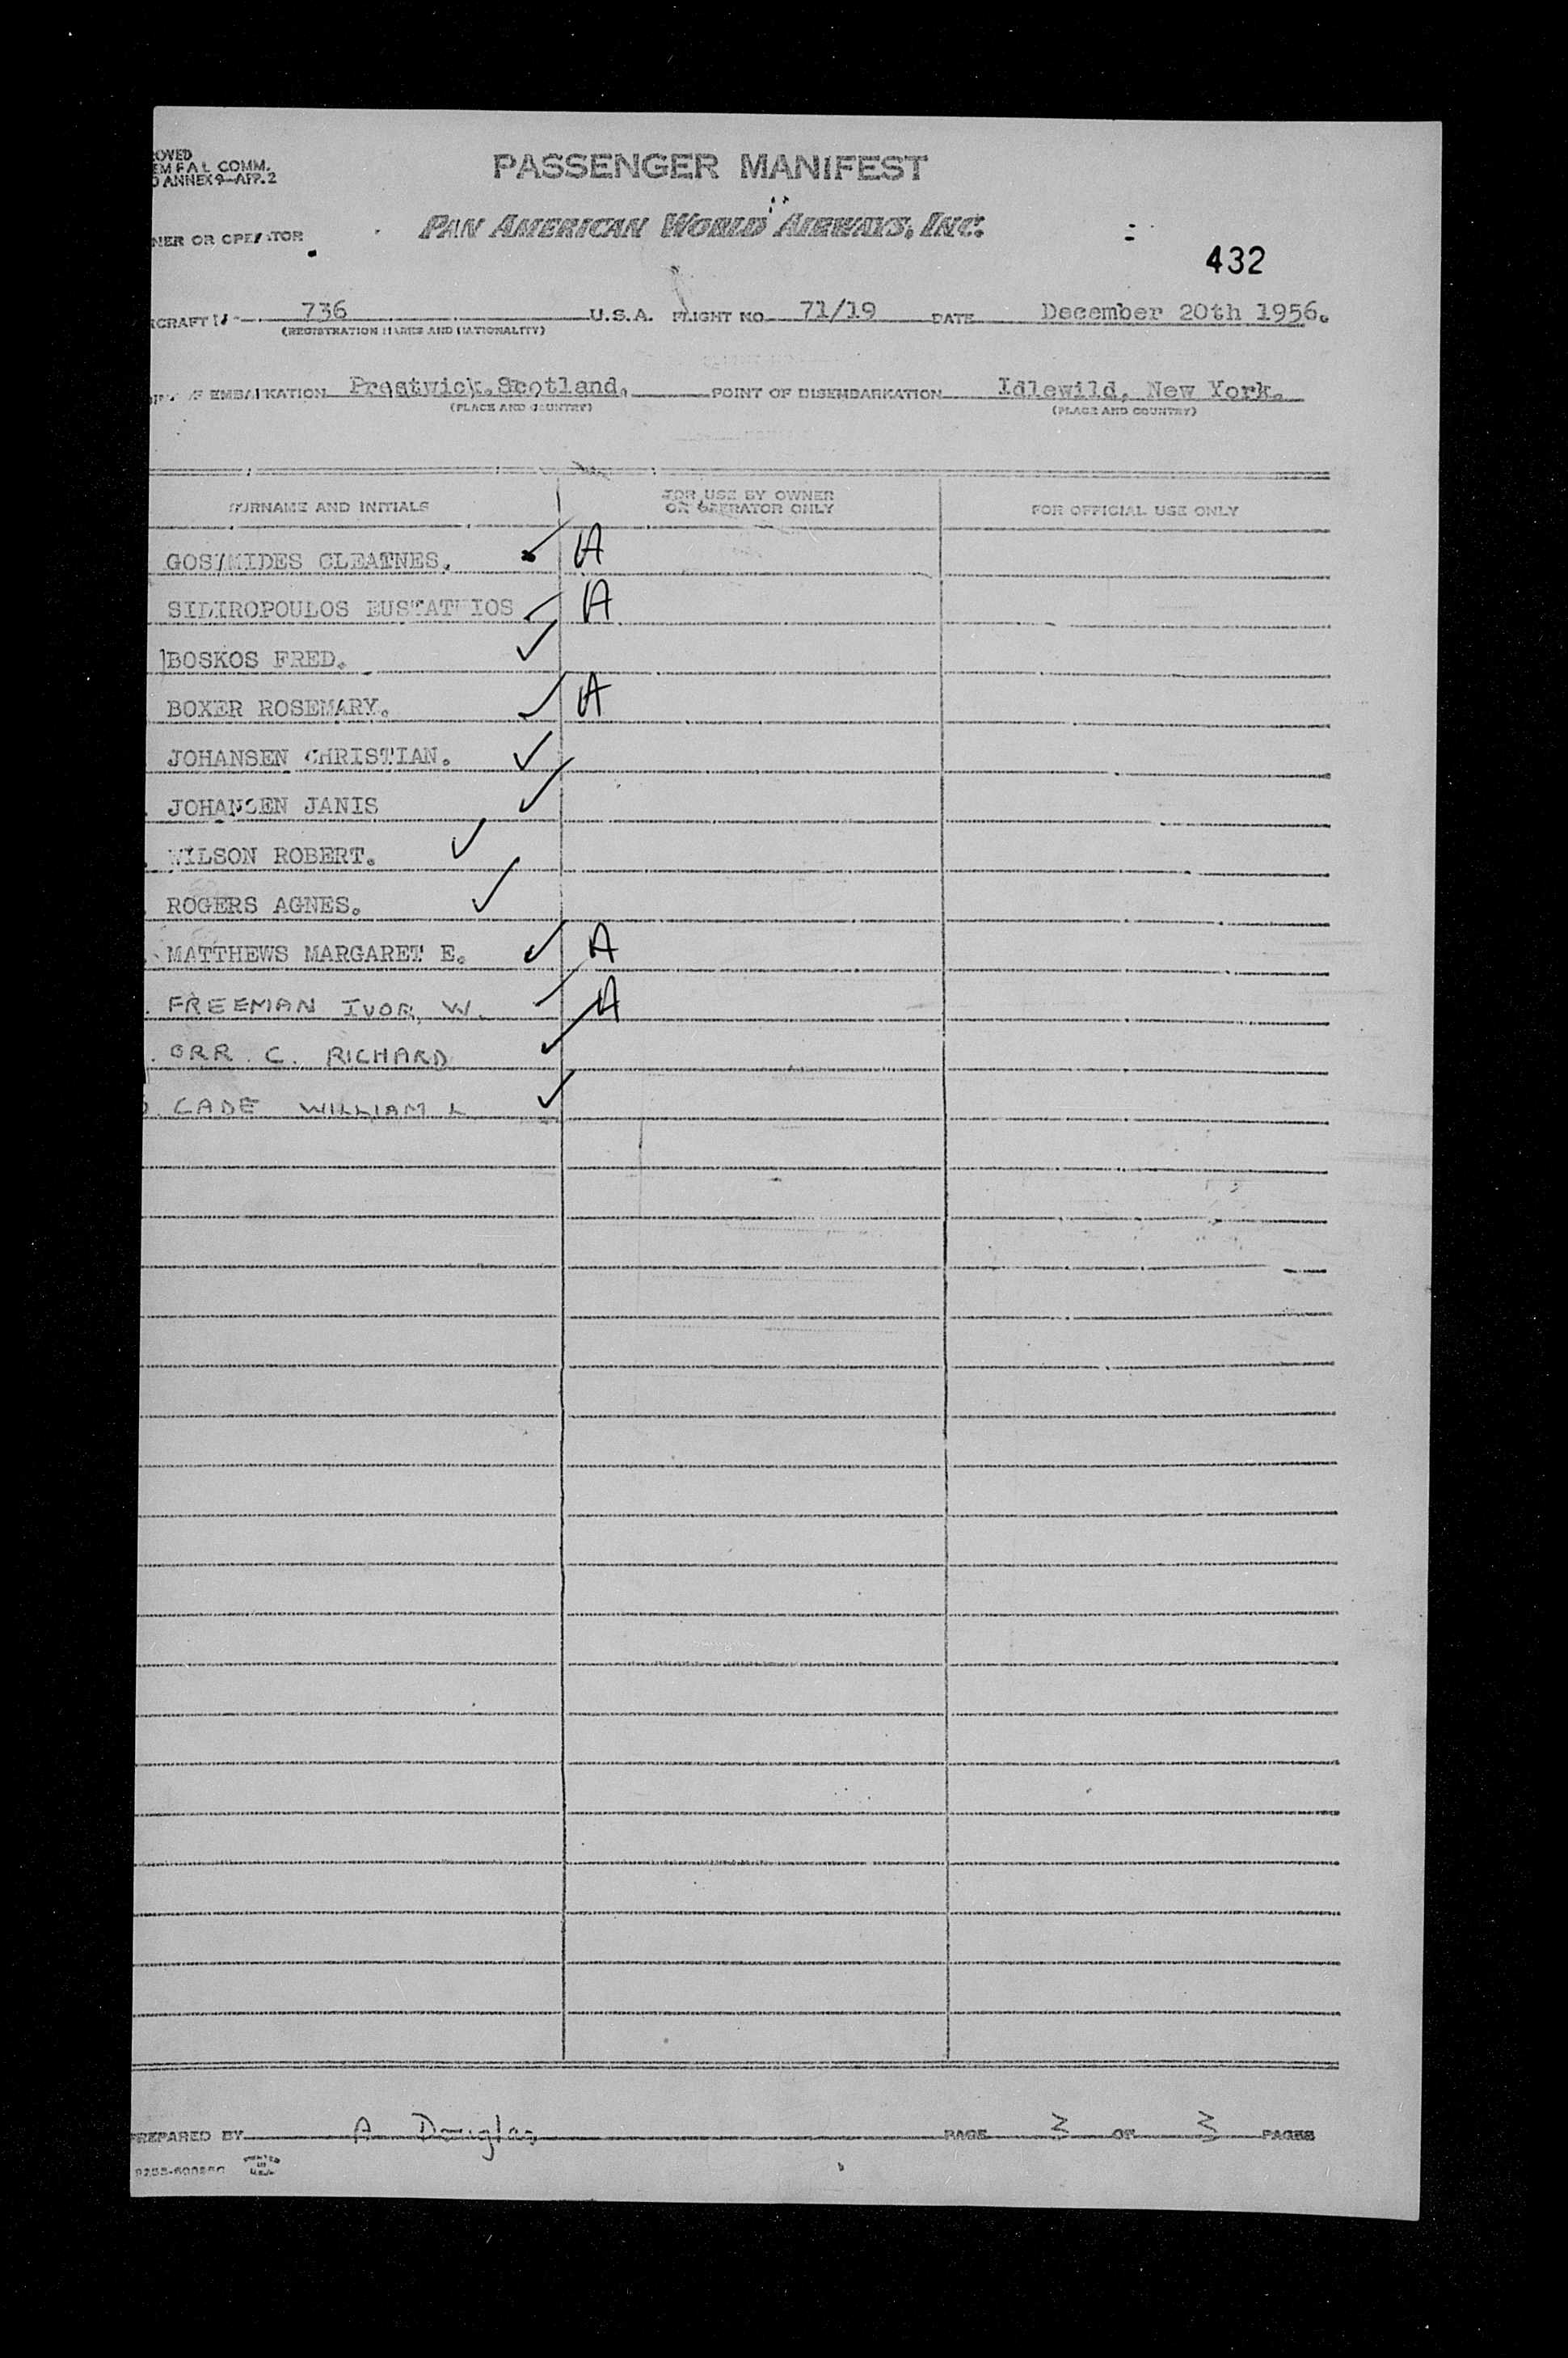 OVED
EM FAL COMM.
O ANNEX 9—APP. 2
PASSENGER MANIFEST
NER OR OPERATOR PAN AMERICAN WORLD AIRWAYS, INC.
432
RCRAFT 736 U.S.A. FLIGHT NO. 71/19 DATE December 20th 1956.
(REGISTRATION MARKS AND NATIONALITY)
EMBARKATION Prestwick.Scotland. POINT OF DISEMBARKATION Idlewild, New York.
(PLACE AND COUNTRY) (PLACE AND COUNTRY)
SURNAME AND INITIALS FOR USE BY OWNER OR OPERATOR ONLY FOR OFFICIAL USE ONLY
CLEATNES. ✓ A
SIDIROPOULOS EUSTATHIOS ✓ A
BOSKOS FRED. ✓
BOXER ROSEMARY. ✓ A
JOHANSEN CHRISTIAN. ✓
JOHANSEN JANIS ✓
WILSON ROBERT. ✓
ROGERS AGNES. ✓
MATTHEWS MARGARET E. ✓ A
FREEMAN IVOR, W. ✓ A
ORR C. RICHARD ✓
CADE WILLIAM L ✓
PREPARED BY A Douglas PAGE 3 OF 3 PAGES
PRINTED IN U.S.A.